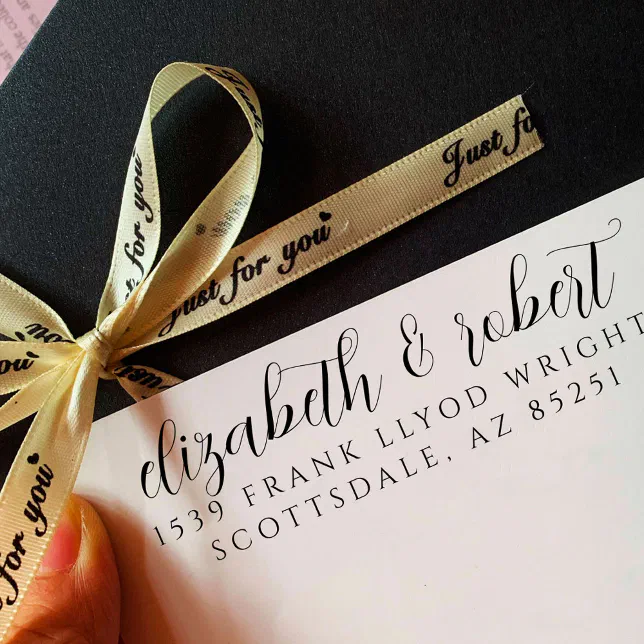 Just for you
Just for
for you
Just for you
for you
elizabeth & robert
1539 FRANK LLYOD WRIGHT
SCOTTSDALE, AZ 85251